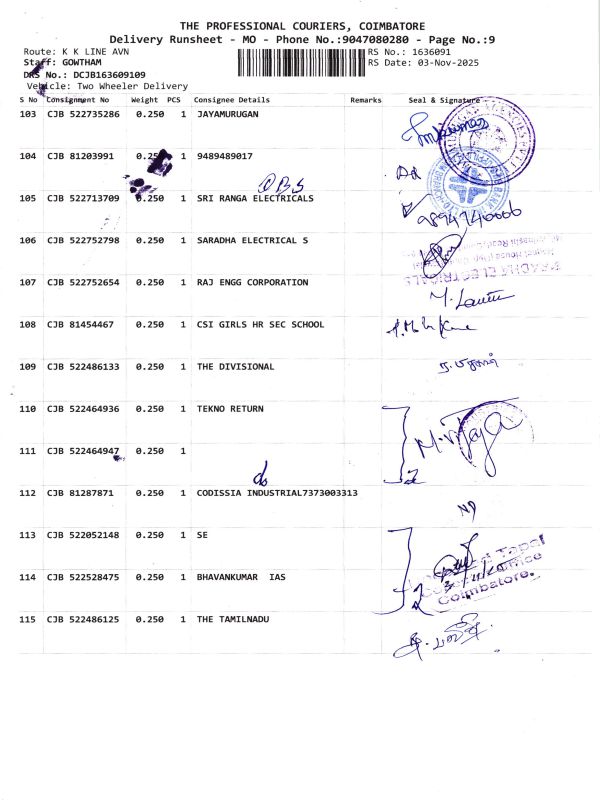 THE PROFESSIONAL COURIERS, COIMBATORE
Delivery Runsheet - MO - Phone No.:9047080280 - Page No.:9
Route: K K LINE AVN RS No.: 1636091
Staff: GOWTHAM RS Date: 03-Nov-2025
DRS No.: DCJB163609109
Vehicle: Two Wheeler Delivery
S No Consignment No Weight PCS Consignee Details Remarks Seal & Signature
103 CJB 522735286 0.250 1 JAYAMURUGAN
104 CJB 81203991 0.250 1 9489489017
OBS
105 CJB 522713709 0.250 1 SRI RANGA ELECTRICALS
9894740006
106 CJB 522752798 0.250 1 SARADHA ELECTRICAL S
107 CJB 522752654 0.250 1 RAJ ENGG CORPORATION
108 CJB 81454467 0.250 1 CSI GIRLS HR SEC SCHOOL
109 CJB 522486133 0.250 1 THE DIVISIONAL
110 CJB 522464936 0.250 1 TEKNO RETURN
111 CJB 522464947 0.250 1
do
112 CJB 81287871 0.250 1 CODISSIA INDUSTRIAL7373003313
ND
113 CJB 522052148 0.250 1 SE
Tapal
114 CJB 522528475 0.250 1 BHAVANKUMAR IAS
Coimbatore.
115 CJB 522486125 0.250 1 THE TAMILNADU